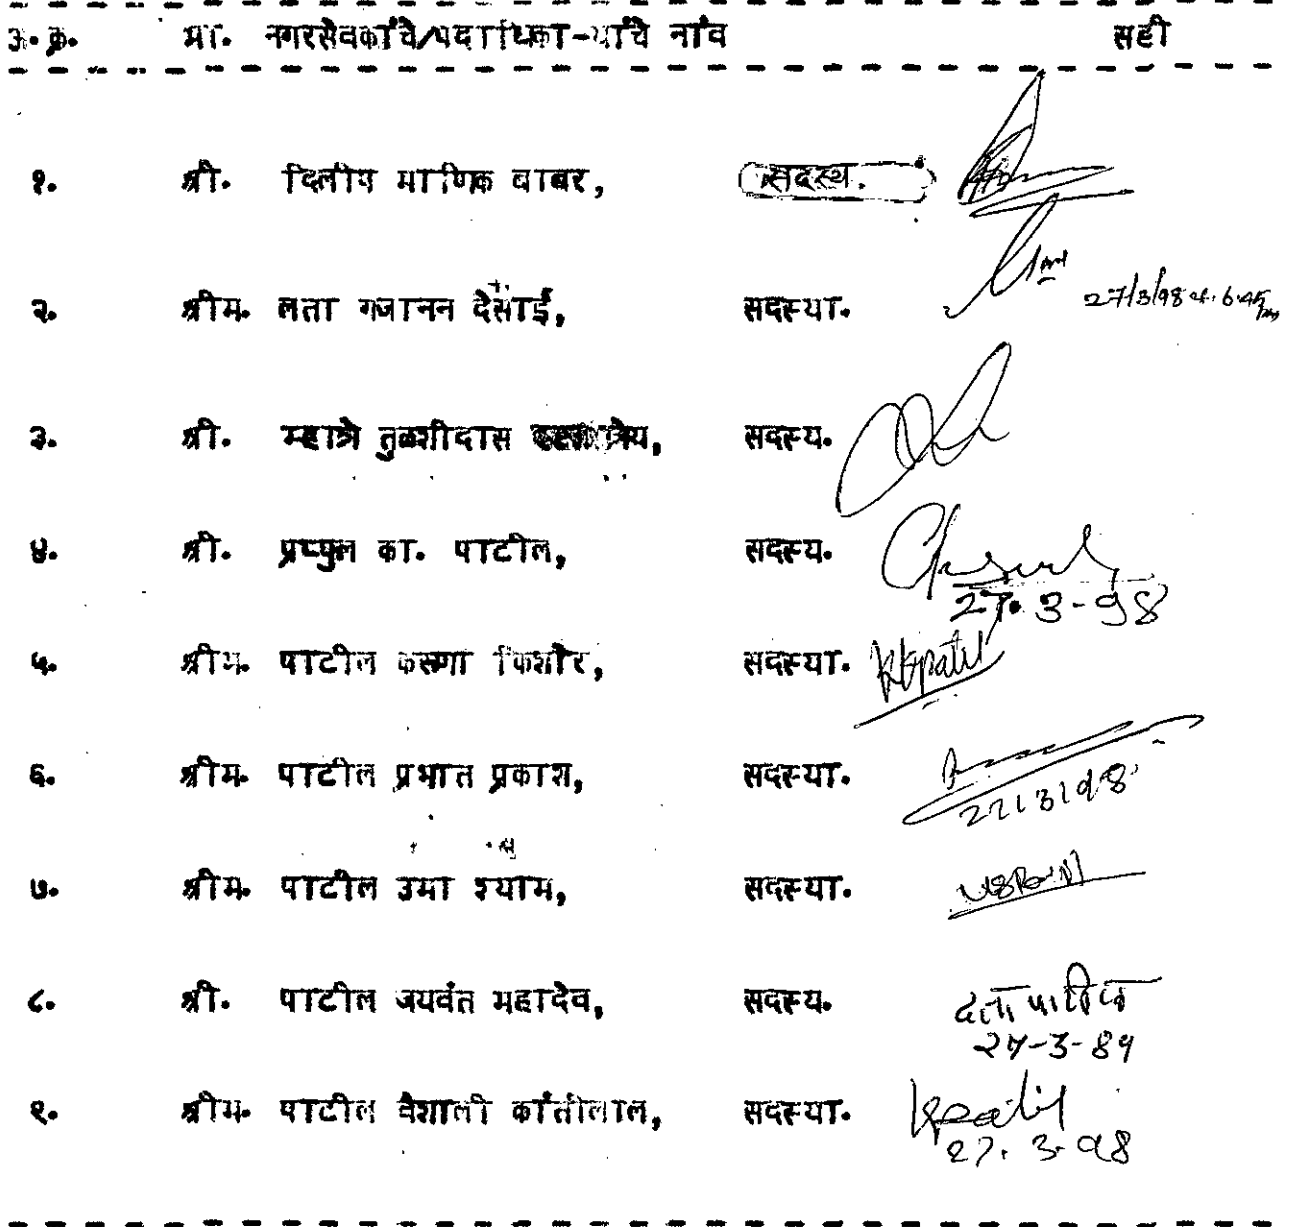 अ.क्र. मा. नगरसेवकांचे/पदाधिका-यांचे नांव सही
१. श्री. दिलीप माणिक बाबर, सदस्य.
२. श्रीम. लता गजानन देसाई, सदस्या. 27/3/98
३. श्री. म्हात्रे तुळशीदास सदस्य.
४. श्री. प्रफ्फुल का. पाटील, सदस्य.
27.3-98
५. श्रीम. पाटील करुणा किशोर, सदस्या. KKpatil
६. श्रीम. पाटील प्रभात प्रकाश, सदस्या.
27/3/98
७. श्रीम. पाटील उमा श्याम, सदस्या.
८. श्री. पाटील जयवंत महादेव, सदस्य.
९. श्रीम. पाटील वैशाली कांतीलाल, सदस्या.
27.3-98